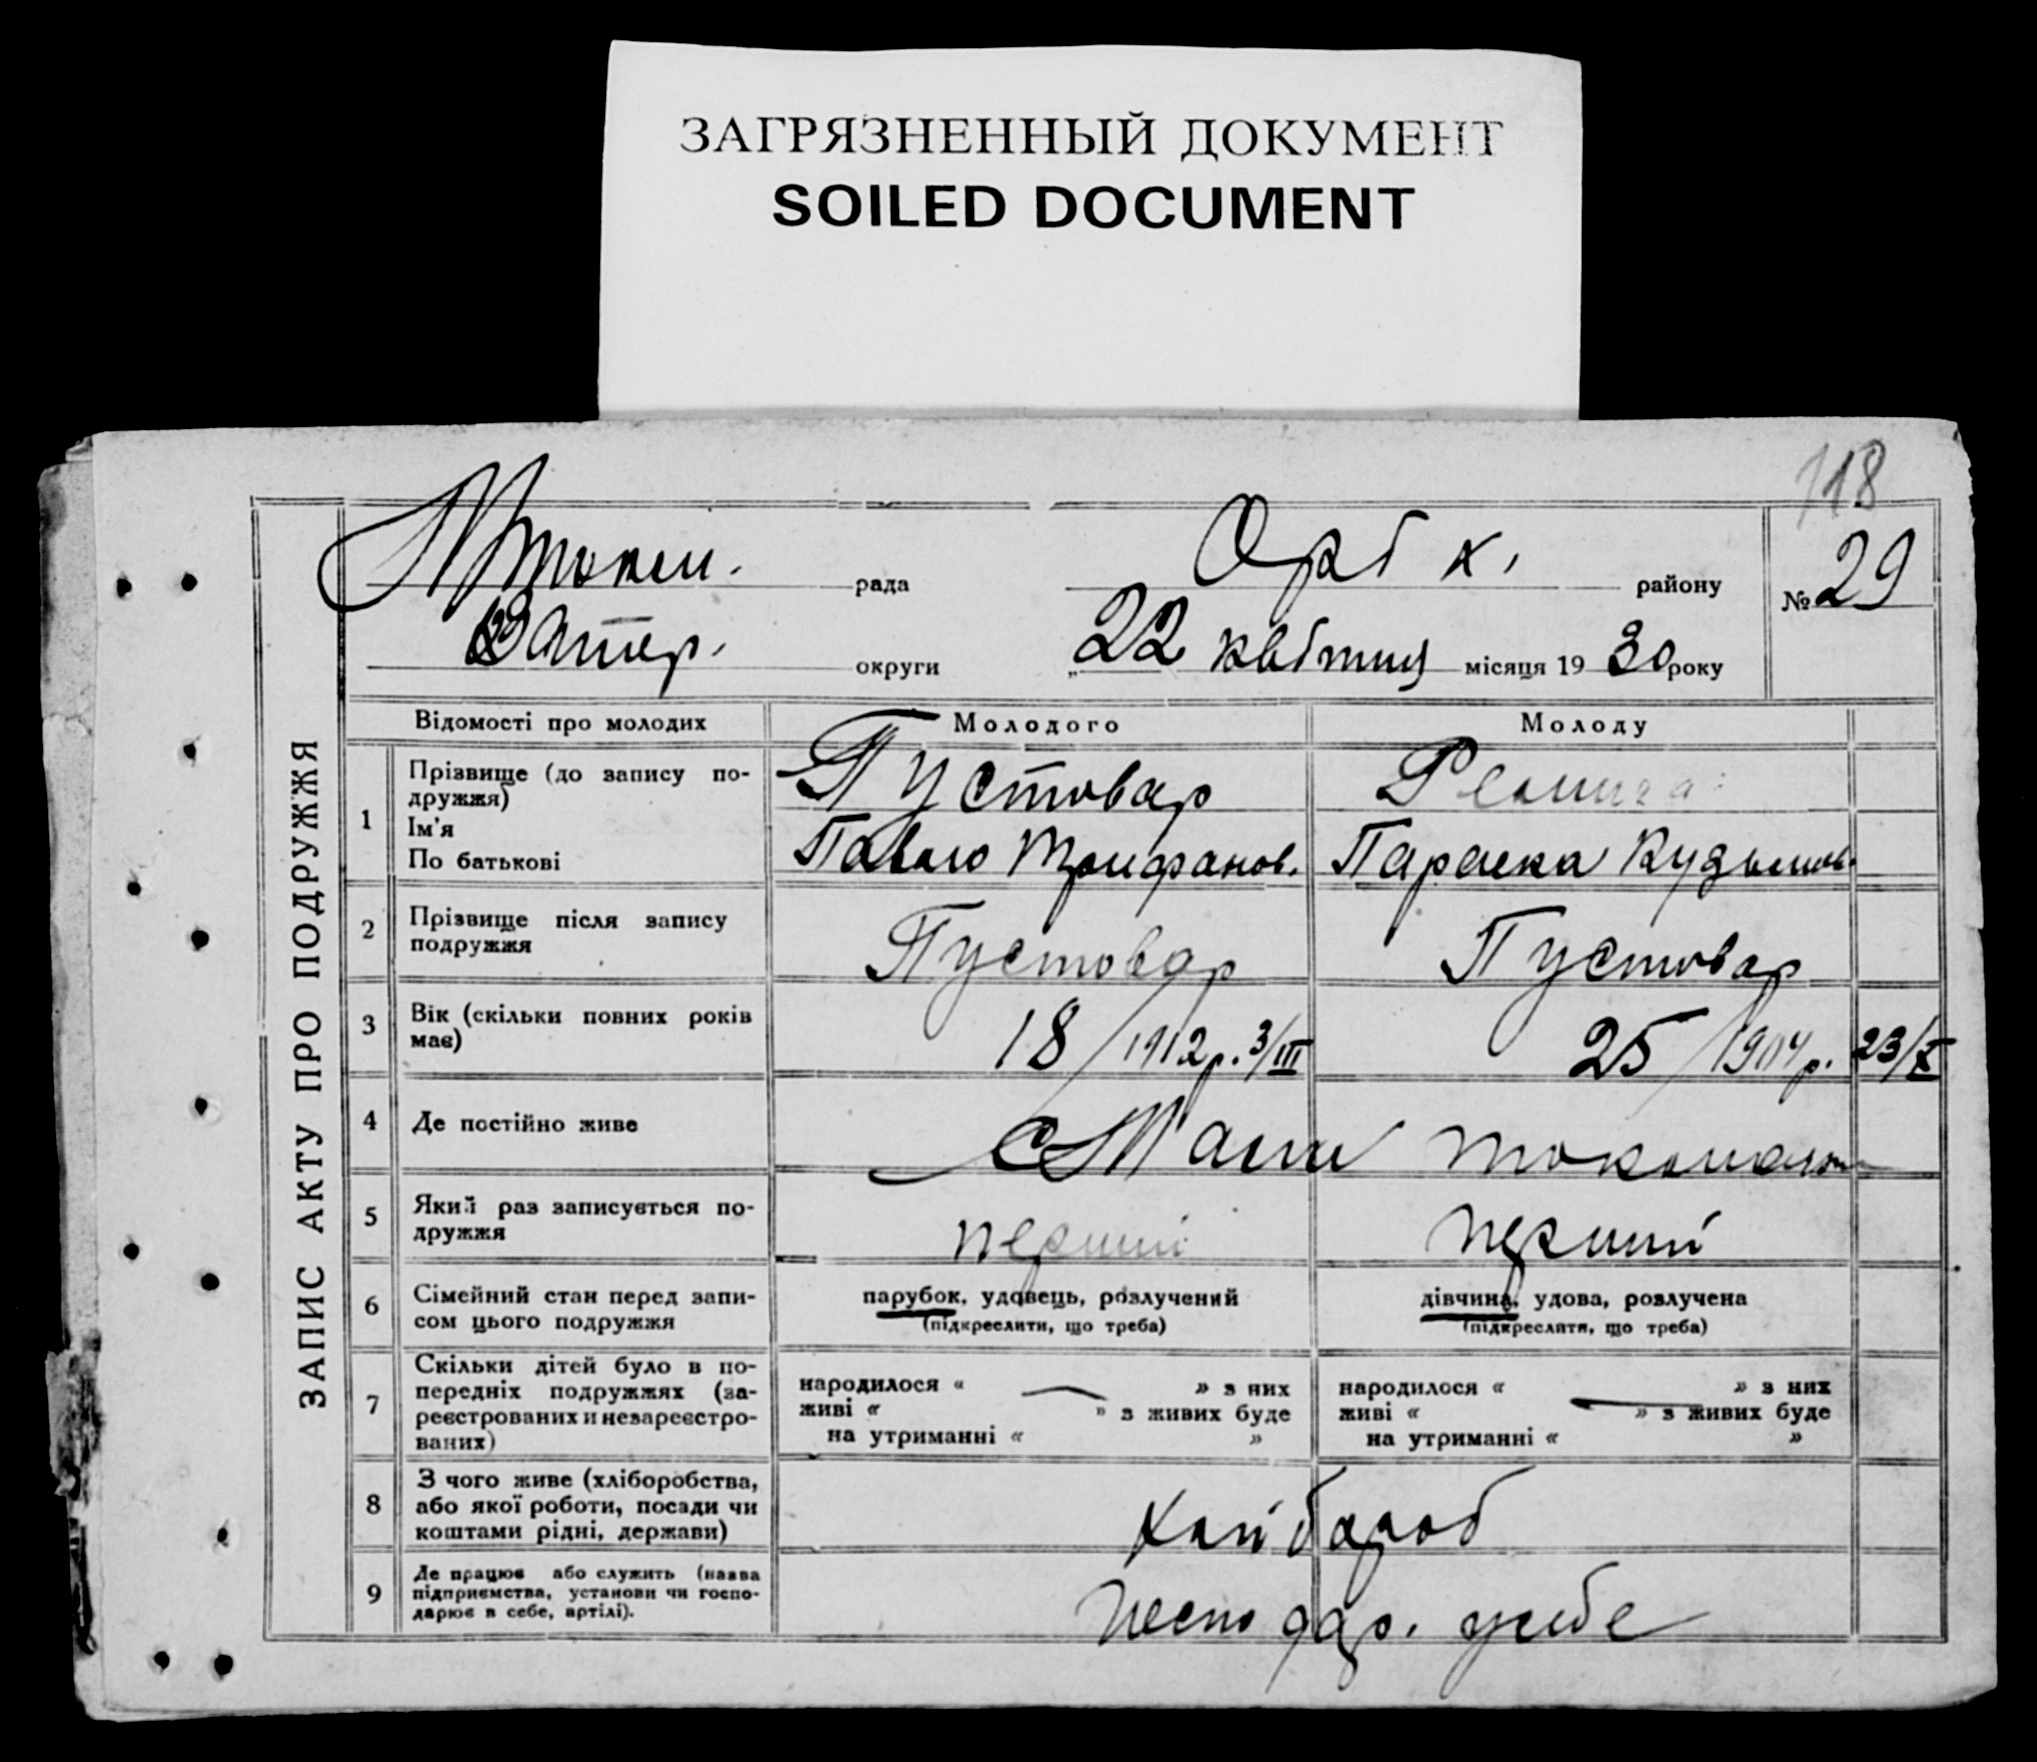 ЗАГРЯЗНЕННЫЙ ДОКУМЕНТ
SOILED DOCUMENT
118
рада района району № 29
округи „22 квітня місяця 1930 року
ЗАПИС АКТУ ПРО ПОДРУЖЖЯ
Відомості про молодих Молодого Молоду
1 Прізвище (до запису по-
дружжя) Пустовар
Ім'я
По батькові Павло Трифанов. Параска
2 Прізвище після запису
подружжя Пустовар Пустовар
3 Вік (скільки повних років
має) 18/1912р. 3/III 25/1904р. 23/X
4 Де постійно живе
5 Який раз записується по-
дружжя перший перший
6 Сімейний стан перед запи-
сом цього подружжя
парубок, удовець, розлучений
(підкреслити, що треба)
дівчина, удова, розлучена
(підкреслити, що треба)
7 Скільки дітей було в по-
передніх подружжях (за-
реєстрованих и незареєстро-
ваних)
народилося « » з них
живі « » з живих буде
на утриманні « »
народилося « » з них
живі « » з живих буде
на утриманні « »
8 З чого живе (хліборобства,
або якої роботи, посади чи
коштами рідні, держави)
Хлібороб
9 Де працює або служить (назва
підприємства, установи чи госпо-
дарює в себе, артілі).
Господар. у себе